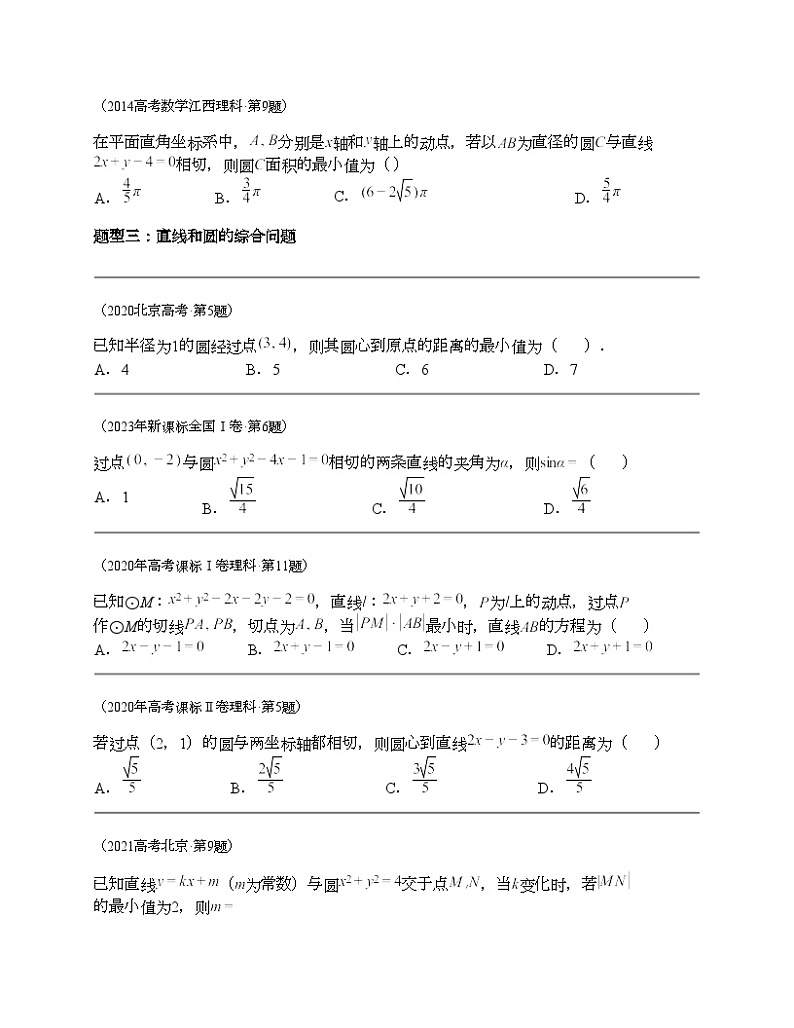 （2014高考数学江西理科·第9题）
在平面直角坐标系中，A，B分别是x轴和y轴上的动点，若以AB为直径的圆C与直线
2x+y−4=0相切，则圆C面积的最小值为（）
A．4/5π B．3/4π C．(6−2√5)π D．5/4π
题型三：直线和圆的综合问题
（2020北京高考·第5题）
已知半径为1的圆经过点(3，4)，则其圆心到原点的距离的最小值为（ ）．
A．4 B．5 C．6 D．7
（2023年新课标全国Ⅰ卷·第6题）
过点(0，−2)与圆x²+y²−4x−1=0相切的两条直线的夹角为α，则sinα=（ ）
A．1 B．√15/4 C．√10/4 D．√6/4
（2020年高考课标Ⅰ卷理科·第11题）
已知⊙M：x²+y²−2x−2y−2=0，直线l：2x+y+2=0，P为l上的动点，过点P
作⊙M的切线PA，PB，切点为A，B，当|PM|·|AB|最小时，直线AB的方程为（ ）
A．2x−y−1=0 B．2x+y−1=0 C．2x−y+1=0 D．2x+y+1=0
（2020年高考课标Ⅱ卷理科·第5题）
若过点（2，1）的圆与两坐标轴都相切，则圆心到直线2x−y−3=0的距离为（ ）
A．√5/5 B．2√5/5 C．3√5/5 D．4√5/5
（2021高考北京·第9题）
已知直线y=kx+m（m为常数）与圆x²+y²=4交于点M，N，当k变化时，若|MN|
的最小值为2，则m=